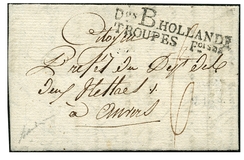 Don B. HOLLANDE
TROUPES
Citoyen
Prefet du Dept des
deux Nethes
à Anvers